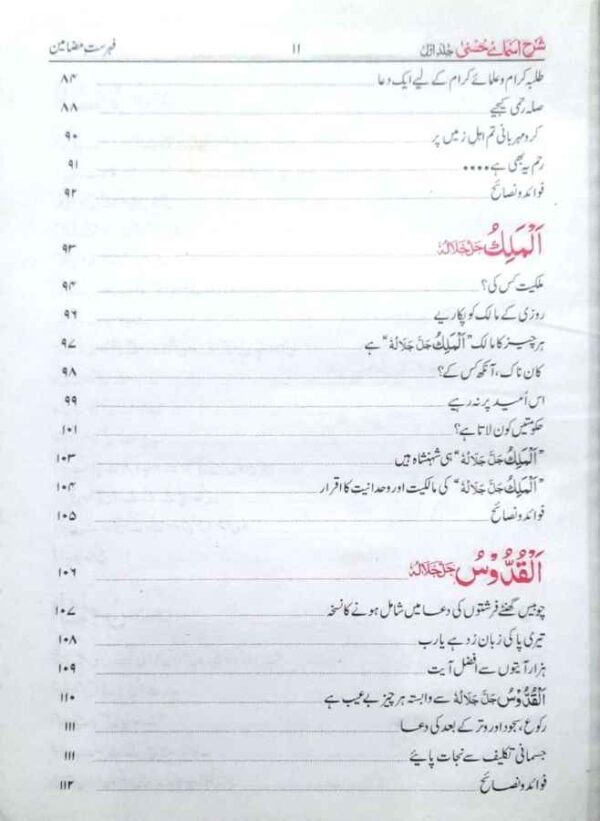 شرح اسمائے حُسنیٰ جلد اوّل ۱۱ فہرست مضامین
طلبہ کرام و علمائے کرام کے لیے ایک دعا ۸۴
صلہ رحمی کیجیے ۸۸
کرو مہربانی تم اہلِ زمیں پر ۹۰
رحم یہ بھی ہے.... ۹۱
فوائد و نصائح ۹۲
اَلْمَلِكُ جَلَّ جَلَالُهٗ ۹۳
ملکیت کس کی؟ ۹۴
روزی کے مالک کو پکاریے ۹۶
ہر چیز کا مالک ”اَلْمَلِكُ جَلَّ جَلَالُهٗ“ ہے ۹۷
کان ناک، آنکھ کس کے؟ ۹۸
اس اُمید پر نہ رہیے ۹۹
حکومتیں کون لاتا ہے؟ ۱۰۱
”اَلْمَلِكُ جَلَّ جَلَالُهٗ“ ہی شہنشاہ ہیں ۱۰۳
”اَلْمَلِكُ جَلَّ جَلَالُهٗ“ کی مالکیت اور وحدانیت کا اقرار ۱۰۴
فوائد و نصائح ۱۰۵
اَلْقُدُّوْسُ جَلَّ جَلَالُهٗ ۱۰۶
چوبیس گھنٹے فرشتوں کی دعا میں شامل ہونے کا نسخہ ۱۰۷
تیری پاکی زبان زد ہے یارب ۱۰۸
ہزار آیتوں سے افضل آیت ۱۰۹
اَلْقُدُّوْسُ جَلَّ جَلَالُهٗ سے وابستہ ہر چیز بے عیب ہے ۱۱۰
رکوع، سجود اور وتر کے بعد کی دعا ۱۱۱
جسمانی تکلیف سے نجات پائیے ۱۱۱
فوائد و نصائح ۱۱۲